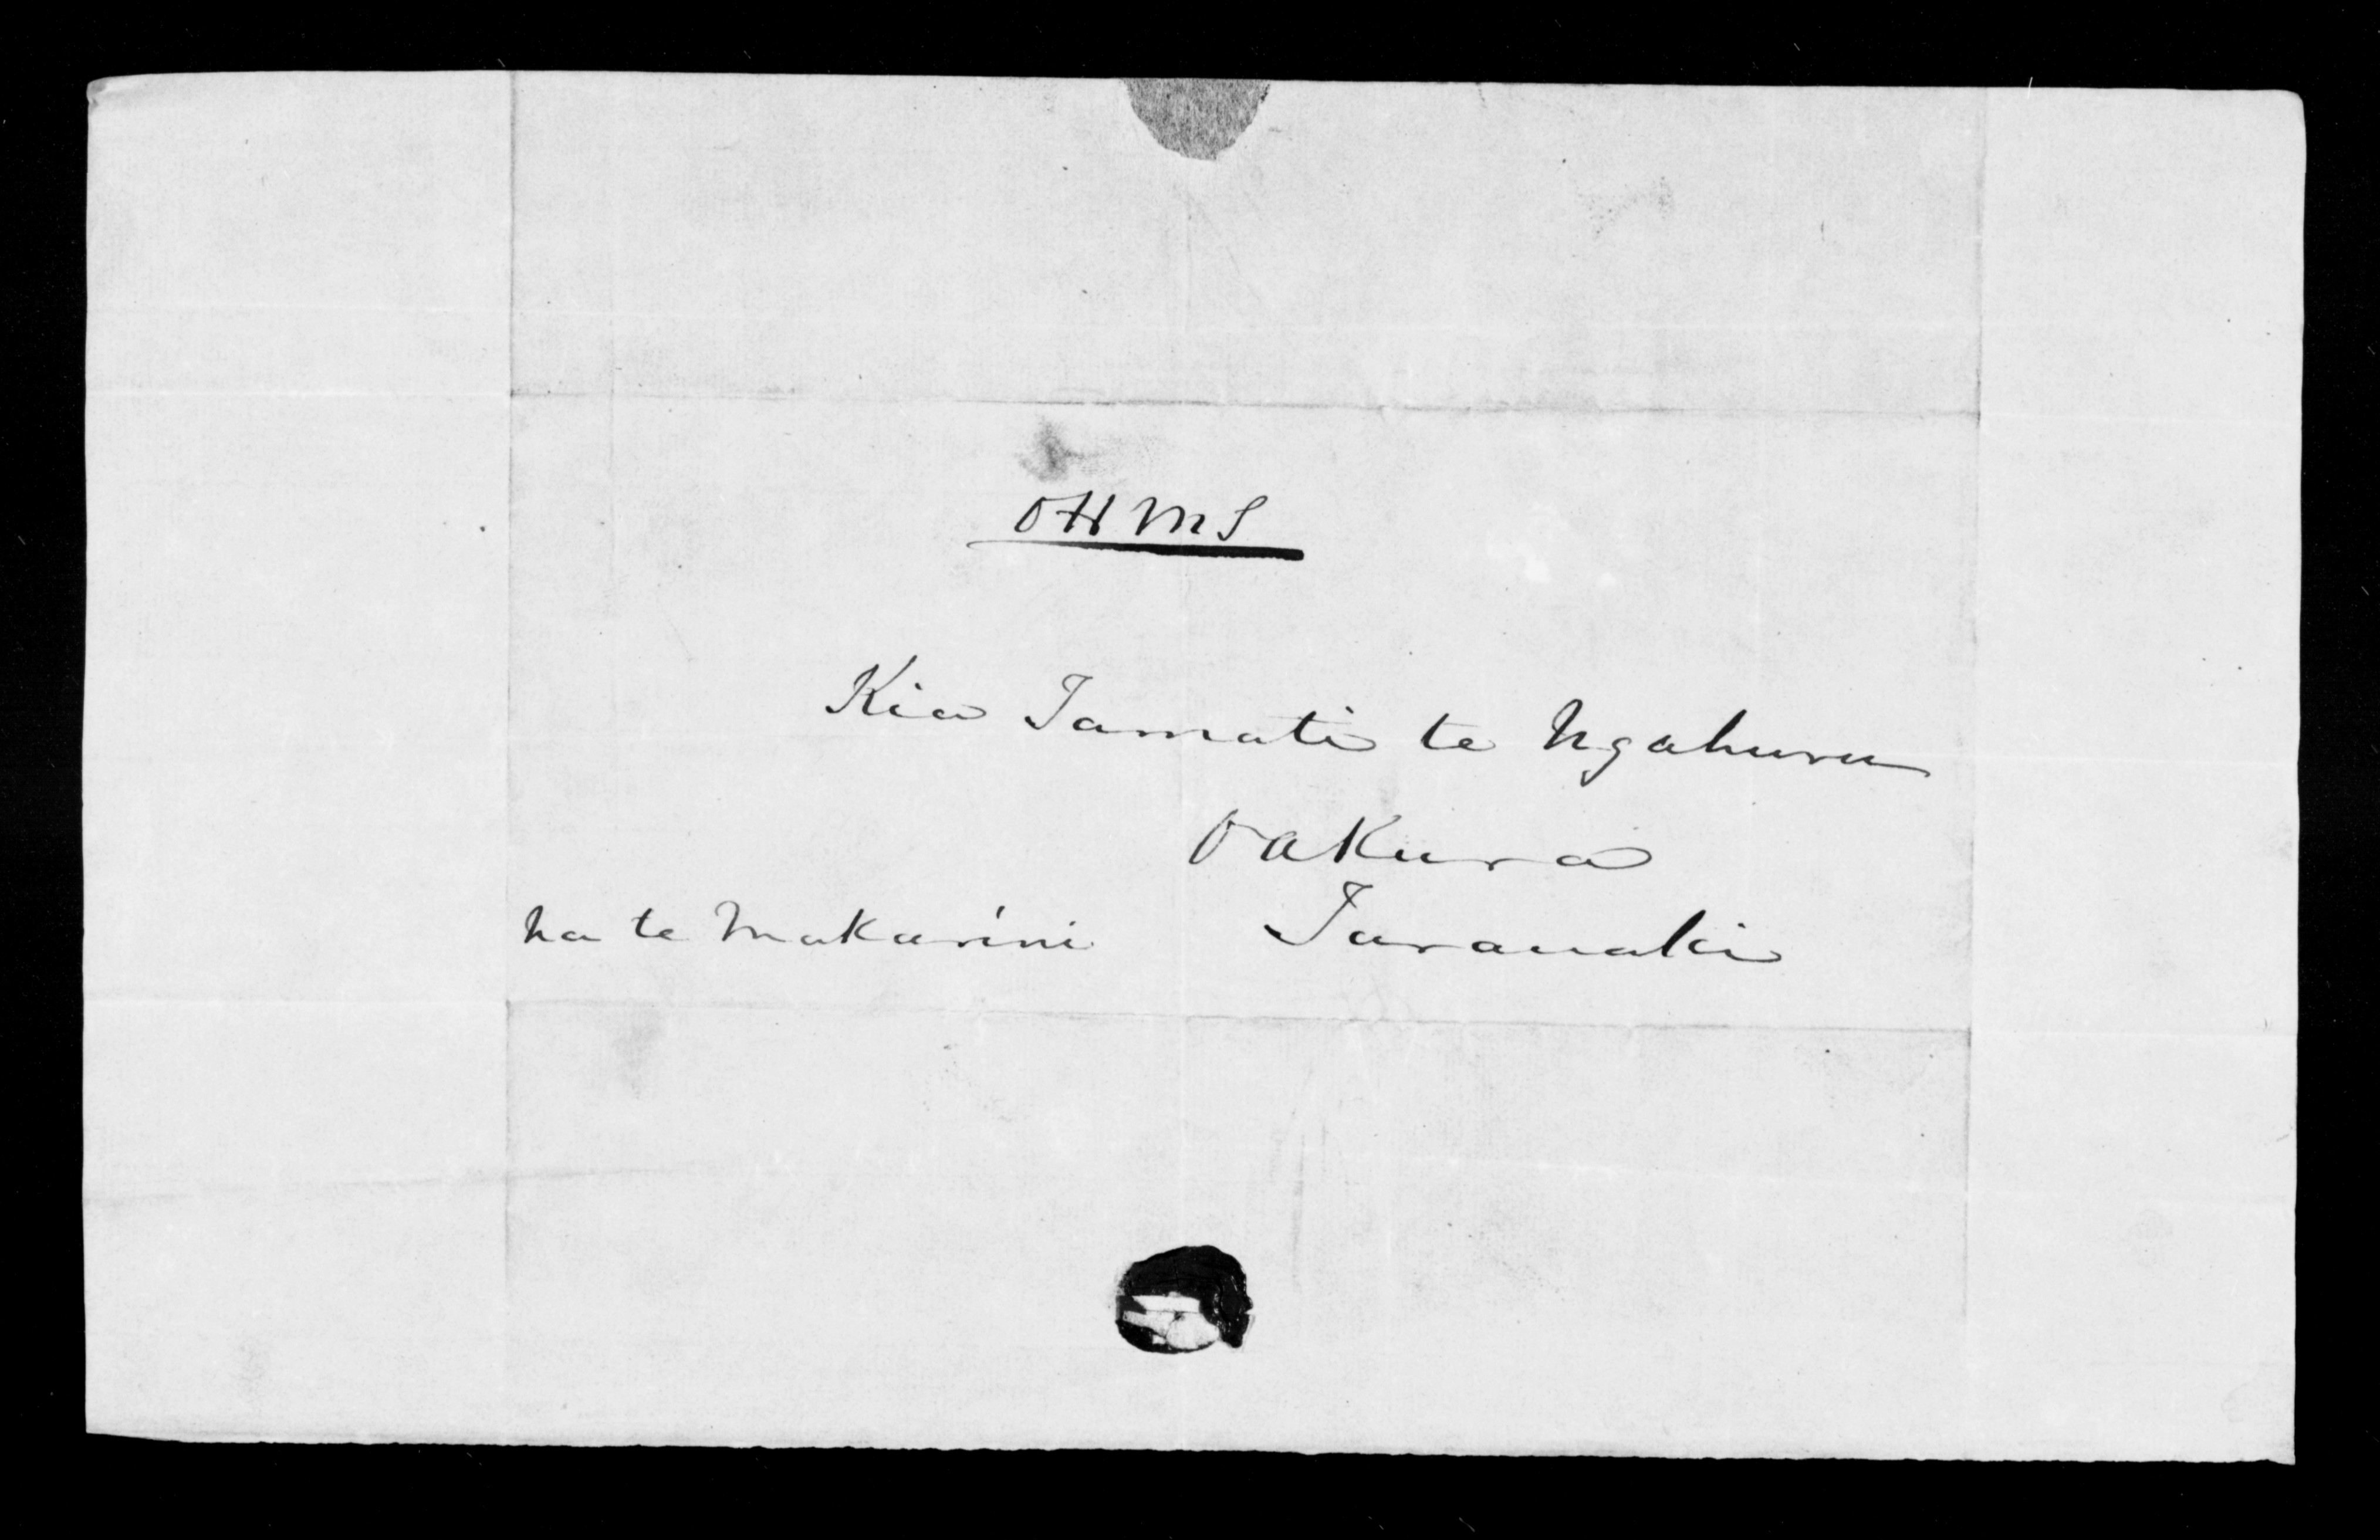 OHMS
Kia Tamati te Ngahuru
Oakura
na te Makarini Taranaki